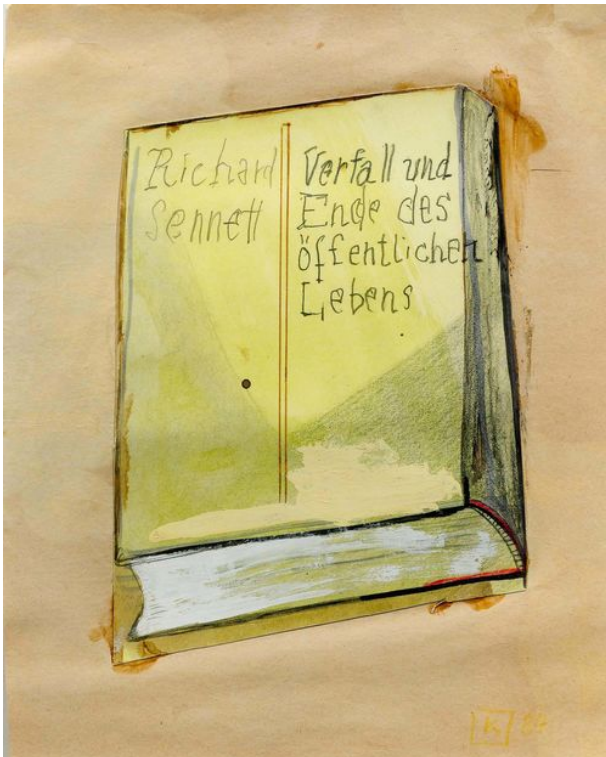 Richard
Sennett
Verfall und
Ende des
öffentlichen
Lebens
K 84